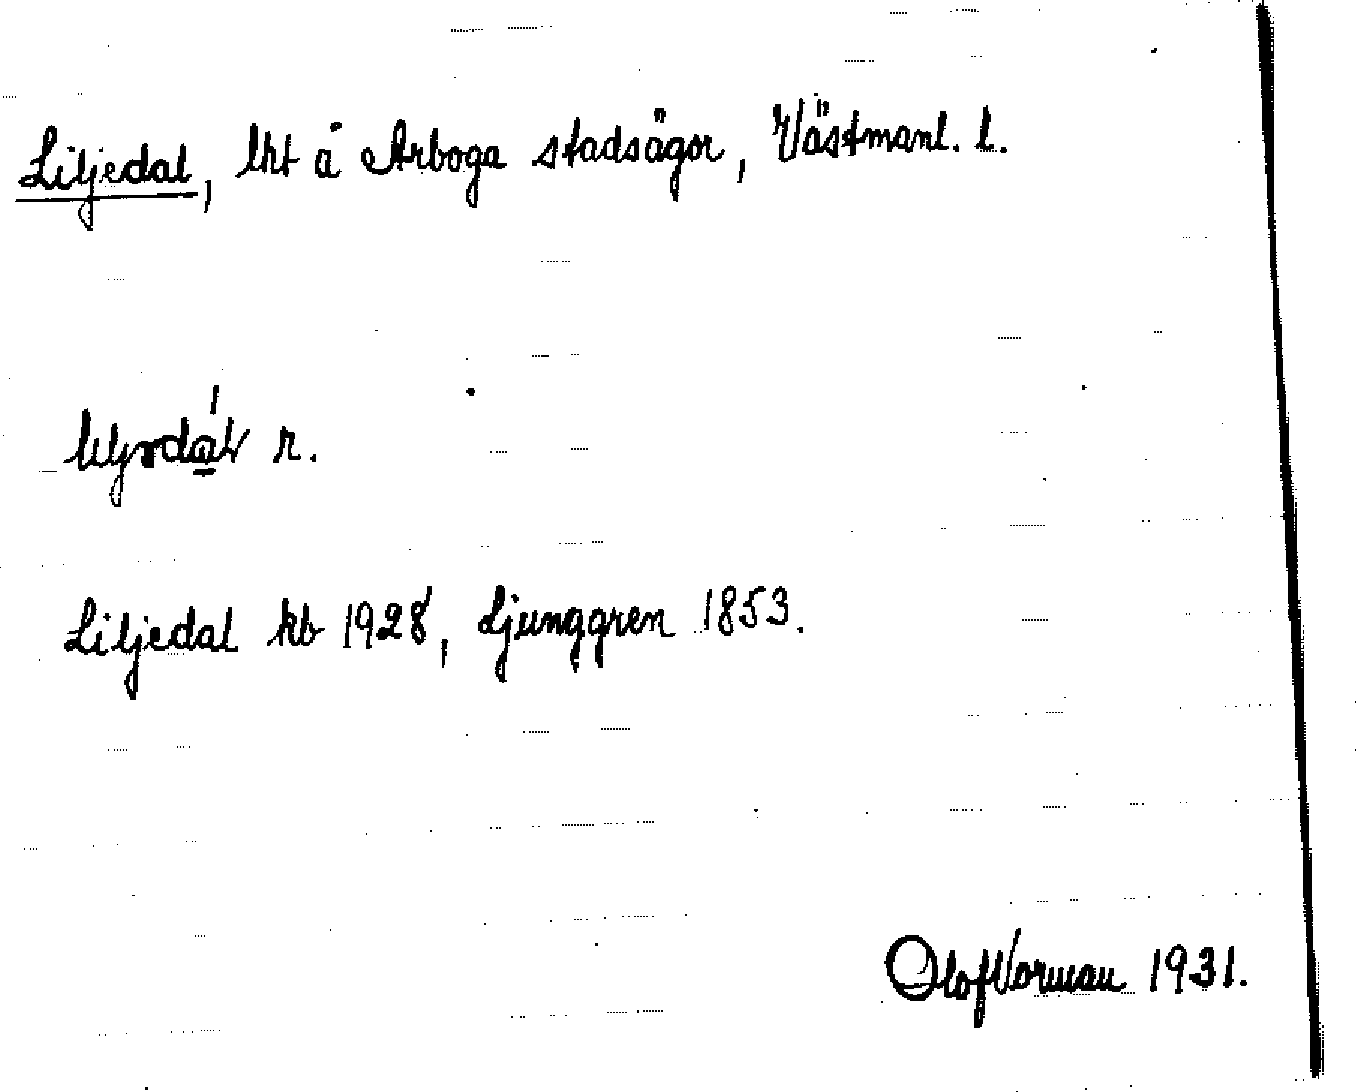 Liljedal, lht å Arboga stadsägor, Västmanl. l.
r.
Liljedal kb 1928, Ljunggren 1853.
Olof Vorman 1931.